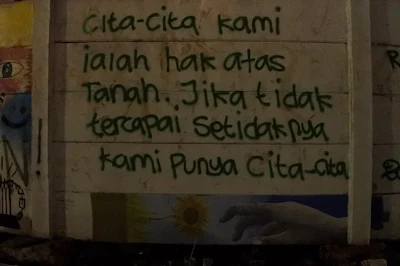 Cita-Cita kami
ialah hak atas
Tanah. Jika tidak
tercapai Setidaknya
kami Punya Cita-Cita